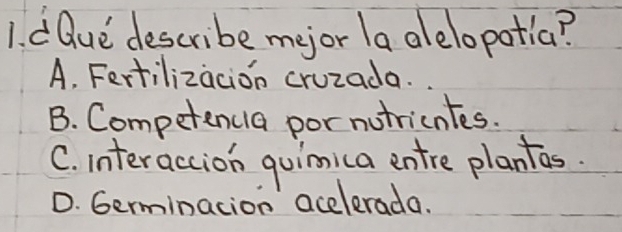 1. ¿Qué describe mejor la alelopatía?
A. Fertilización cruzada..
B. Competencia por nutrientes.
C. interacción química entre plantas.
D. Germinación acelerada.